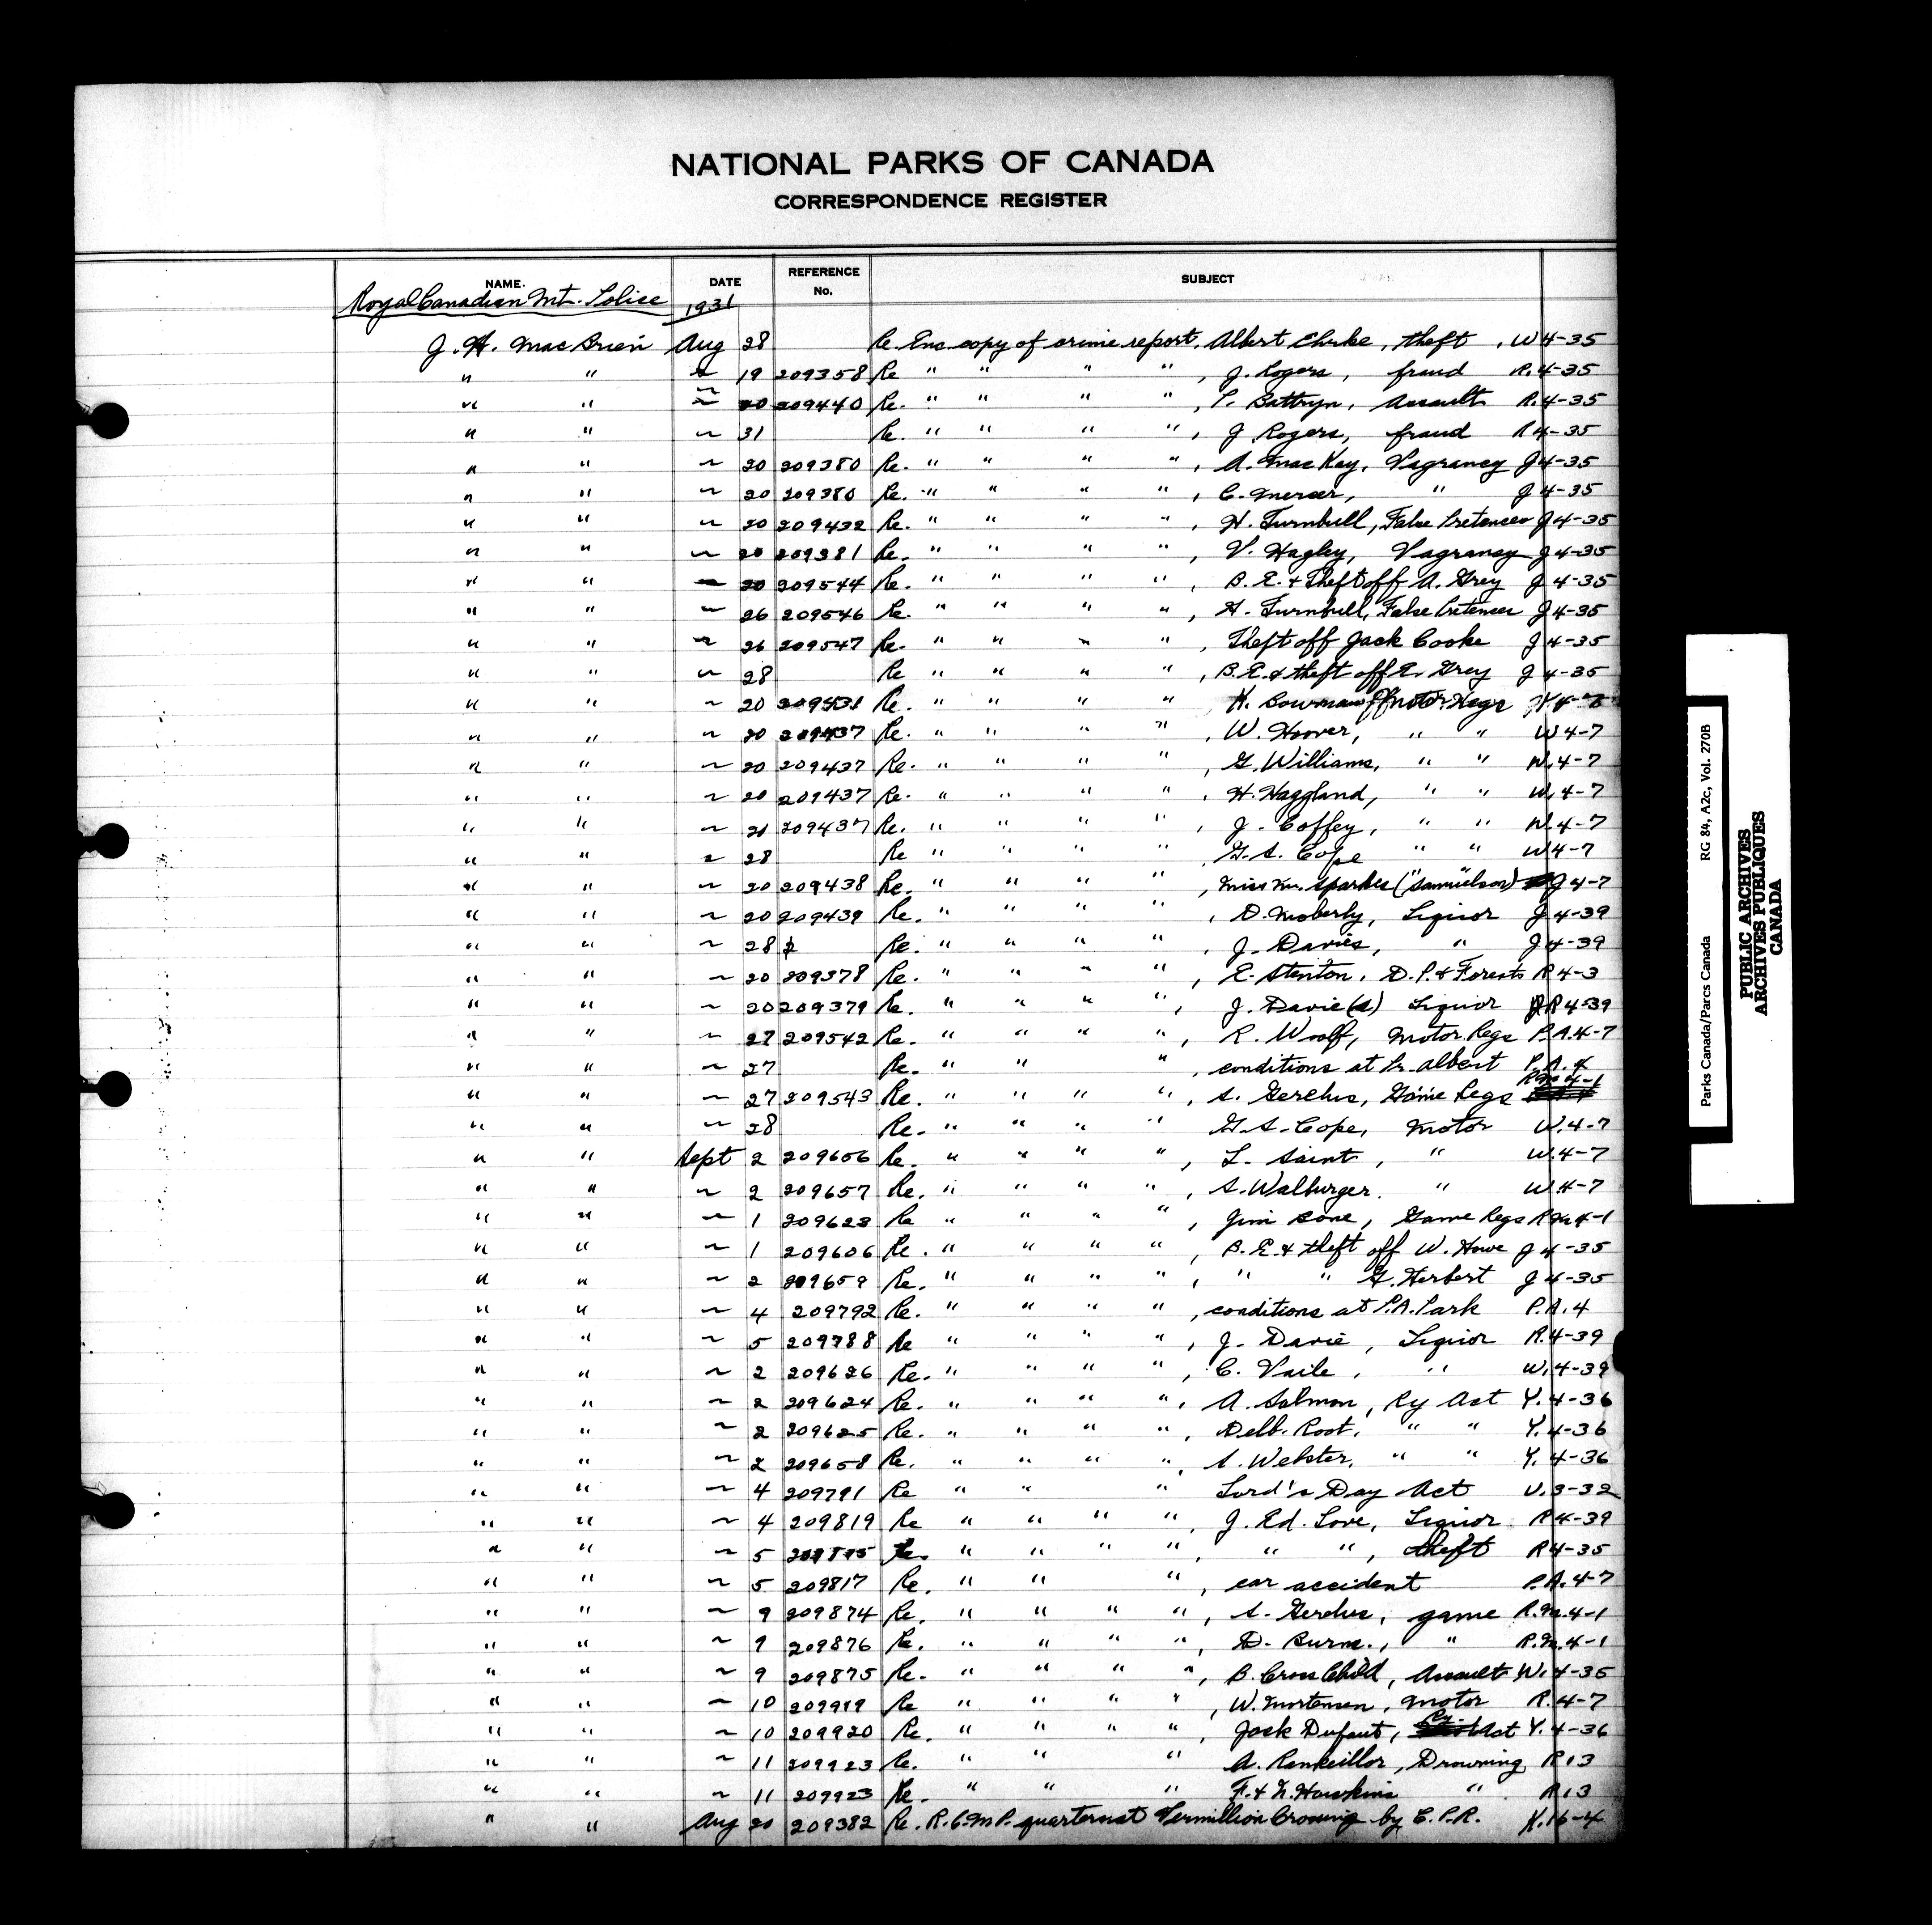 NATIONAL PARKS OF CANADA
CORRESPONDENCE REGISTER
NAME. DATE REFERENCE No. SUBJECT
Royal Canadian Mt. Police 1931
J. H. MacBrien Aug 28 Re. Enc copy of crime report, Albert Clarke, theft, W 4-35
" " ~ 19 209358 Re " " " ", J. Rogers, fraud R. 4-35
" " ~ 20 209440 Re. " " " ", Battryn, Assault R. 4-35
" " ~ 31 Re. " " " ", J. Rogers, fraud R 4-35
" " ~ 20 209380 Re. " " " ", A. MacKay, Vagrancy J 4-35
" " ~ 20 209380 Re. " " " ", C. Mercer, " J 4-35
" " ~ 20 209432 Re. " " " ", H. Turnbull, False Pretences J 4-35
" " ~ 20 209381 Re. " " " ", V. Hagley, Vagrancy J 4-35
" " ~ 20 209544 Re. " " " ", B. E. & Theft off A. Grey J 4-35
" " ~ 26 209546 Re. " " " ", H. Turnbull, False Pretences J 4-35
" " ~ 26 209547 Re. " " " ", Theft off Jack Cooke J 4-35
" " ~ 28 Re " " " ", B.E. & theft off E. Grey J 4-35
" " ~ 20 209431 Re. " " " " Bowman Motor Regs
" " ~ 20 209437 Re. " " " ", W. Hoover, " " W 4-7
" " ~ 20 209437 Re. " " " ", G. Williams, " " W. 4-7
" " ~ 20 209437 Re. " " " ", H. Haggland, " " W. 4-7
" " ~ 20 209437 Re. " " " ", J. Coffey, " " W. 4-7
" " ~ 28 Re " " " ", G. S. Cope " " W 4-7
" " ~ 20 209438 Re. " " " ", Miss M. Sparkes ("Samuelson) J 4-7
" " ~ 20 209439 Re. " " " ", D. Moberly, Liquor J 4-39
" " ~ 28 Re. " " " ", J. Davies, " J 4-39
" " ~ 20 209378 Re. " " " ", E. Stenton, D.P. & Forests R 4-3
" " ~ 20 209379 Re. " " " ", J. Davie(s) Liquor R 4-39
" " ~ 27 209542 Re. " " " ", R. Woolf, Motor Regs P.A. 4-7
" " ~ 27 Re. " " ", conditions at Pr. Albert P.A. 4
" " ~ 27 209543 Re. " " " ", S. Gerelus, Game Regs R.M 4-1
" " ~ 28 Re. " " " " G. S. Cope, Motor W. 4-7
" " Sept 2 209656 Re. " " " ", L. Saint, " W. 4-7
" " ~ 2 209657 Re. " " " ", S. Walburger. " W. 4-7
" " ~ 1 209623 Re " " " ", Jim Bone, Game Regs R.M 4-1
" " ~ 1 209606 Re. " " " ", B. E. & theft off W. Howe J 4-35
" " ~ 2 209659 Re. " " " ", " " G. Herbert J 4-35
" " ~ 4 209792 Re. " " " ", conditions at P.A. Park P.A. 4
" " ~ 5 209788 Re " " " ", J. Davie, Liquor R. 4-39
" " ~ 2 209626 Re. " " " ", C. Vaile, " W. 4-39
" " ~ 2 209624 Re. " " " ", A. Salmon, Ry Act Y. 4-36
" " ~ 2 209625 Re. " " " ", Delb. Root, " " Y. 4-36
" " ~ 2 209658 Re. " " " ", S. Webster, " " Y. 4-36
" " ~ 4 209791 Re " " " Lord's Day Act U. 3-32
" " ~ 4 209819 Re " " " ", J. Ed. Love, Liquor R 4-39
" " ~ 5 Re. " " " ", " ", theft R 4-35
" " ~ 5 209817 Re. " " ", car accident P.A. 4-7
" " ~ 9 209874 Re. " " " ", S. Gerelus, game R.M. 4-1
" " ~ 9 209876 Re. " " " ", D. Burns, " R.M. 4-1
" " ~ 9 209875 Re. " " " ", B. Cross Child, Assault W. 4-35
" " ~ 10 209919 Re " " " ", W. Mortensen, Motor R. 4-7
" " ~ 10 209920 Re. " " " ", Jack Dufaut, Ry. Act Y. 4-36
" " ~ 11 209923 Re. " " " A. Rankeillor, Drowning R 13
" " ~ 11 209923 Re. " " " F. & N. Hawkins " R 13
" " Aug 20 209382 Re. R.C.M.P. quarters at Vermillion Crossing by C.P.R. K. 16-4
Parks Canada/Parcs Canada RG 84, A2c, Vol. 270B
PUBLIC ARCHIVES
ARCHIVES PUBLIQUES
CANADA